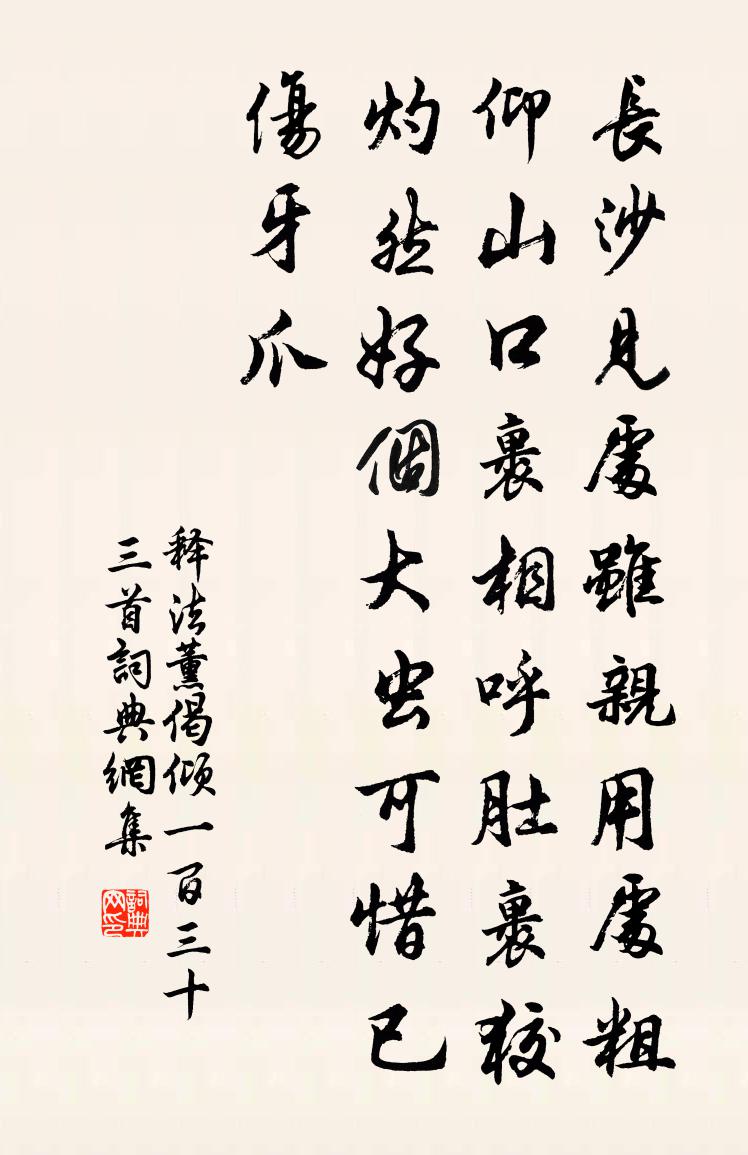 長沙見處雖親用處粗
仰山口裏相呼肚裏狡
灼然好個大虫可惜已
傷牙爪
释法薰偈倾一百三十
三首詞典網集
詞典網印